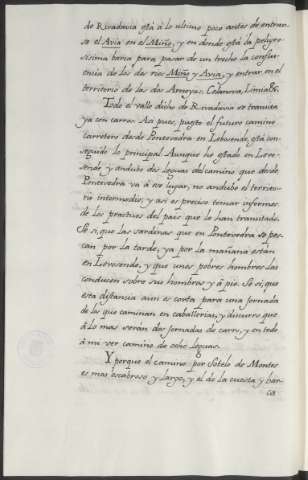 de Rivadavia está à lo ultimo poco antes de entrar-
se el Avia en el Miño, y en donde está la peligro-
sisima barca para pasar de un trecho la conflu-
encia de los dos rios Miño y Avia, y entrar en el
territorio de las dos Arnoyas, Celanova, Limia &c.
Todo el valle dicho de Rivadavia se transita
ya con carros. Asi pues, puesto el futuro camino
carretero desde Pontevedra en Lebosende, está con-
seguido lo principal. Aunque he estado en Lebo-
sende y anduve dos leguas del camino que desde
Pontevedra va à ese lugar, no anduve el territo-
rio intermedio; y asi es preciso tomar informes
de los practicos del pais que lo han transitado.
Sé si, que las sardinas que en Pontevedra se pes-
can por la tarde, ya por la mañana están
en Levosende, y que unos pobres hombres las
conducen sobre sus hombros y à pie. Sé si, que
esta distancia aun es corta para una jornada
de los que caminan en caballerias, y discurro que
à lo mas serán dos jornadas de carro, y en todo
à mi ver camino de ocho leguas.
Y porque el camino por Sotelo de Montes
es mas escabroso y largo, y el de la cuesta y bar-
ca